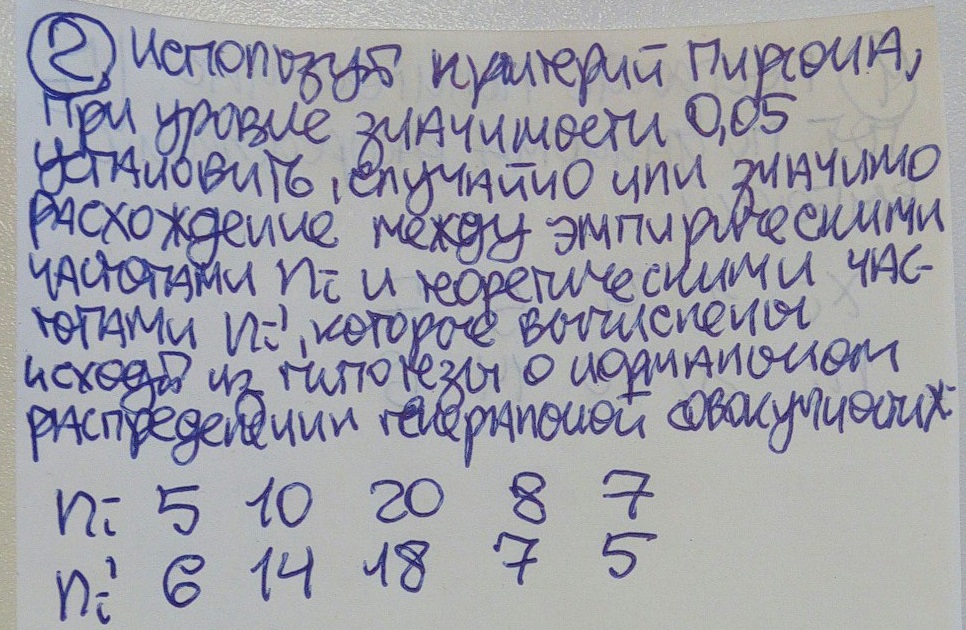 2, Используя критерий Пирсона,
при уровне значимости 0,05
установить, случайно или значимо
расхождение между эмпирическими
частотами ni и теоретическими час-
тотами ni', которые вычислены
исходя из гипотезы о нормальном
распределении генеральной совокупности X
ni 5 10 20 8 7
ni' 6 14 18 7 5